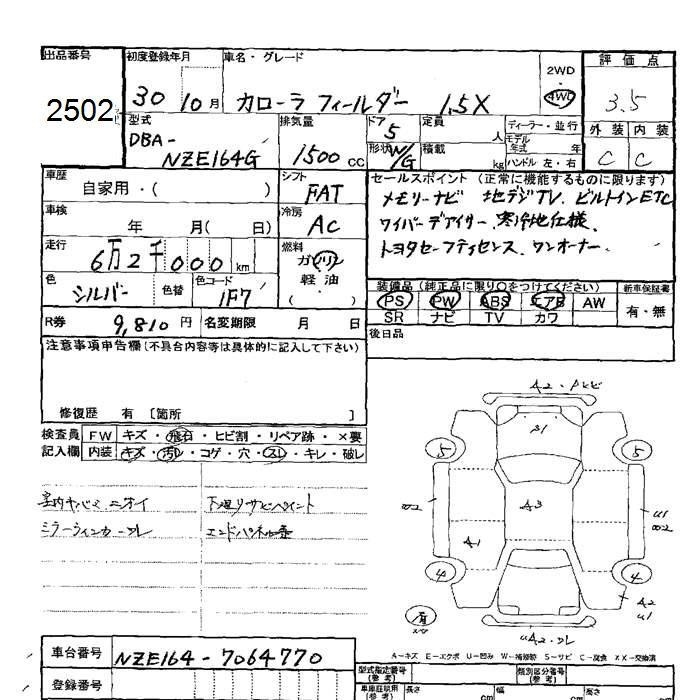 出品番号 初度登録年月 車名・グレード 評価点
2502 30 10月 カローラ フィールダー 1.5X 2WD ・ 4WD 3.5
型式 排気量 ドア 定員 ディーラー・並行 外装 内装
DBA- 5 人 モデル年式 年
NZE164G 1500 CC 形状 W/G 積載 kg ハンドル 左・右 C C
車歴 シフト セールスポイント (正常に機能するものに限ります)
自家用・( ) FAT メモリーナビ 地デジTV、ビルトインETC
車検 冷房 ワイパーデアイサー、寒冷地仕様、
年 月( 日) AC トヨタセーフティセンス、ワンオーナー、
走行 燃料
6万2千000km ガソリン
色 色替 色コード 軽油 装備品 (純正品に限り○をつけてください) 新車保証書
シルバー 1F7 ・( ) PS PW ABS エアB AW 有・無
SR ナビ TV カワ
R券 9,810円 名変期限 月 日 後日品
注意事項申告欄(不具合内容等は具体的に記入して下さい)
修復歴 有 [箇所 ]
検査員 FW キズ・飛石・ヒビ割・リペア跡・×要
記入欄 内装 キズ・汚レ・コゲ・穴・スレ・キレ・破レ
室内ヤバミ ニオイ 下廻りサビペイント
ミラーウィンカーワレ
A2・
β1
5 5
A3
A1
U1
4 4
A2
U1
UA2・ワレ
A-キズ E-エクボ U-凹み W-補修跡 S-サビ C-腐食 XX-交換済
車台番号 NZE164-7064770 型式指定番号(参考) 類別区分番号(参考)
登録番号 車庫証明用(参考) 長さ cm 幅 cm 高さ